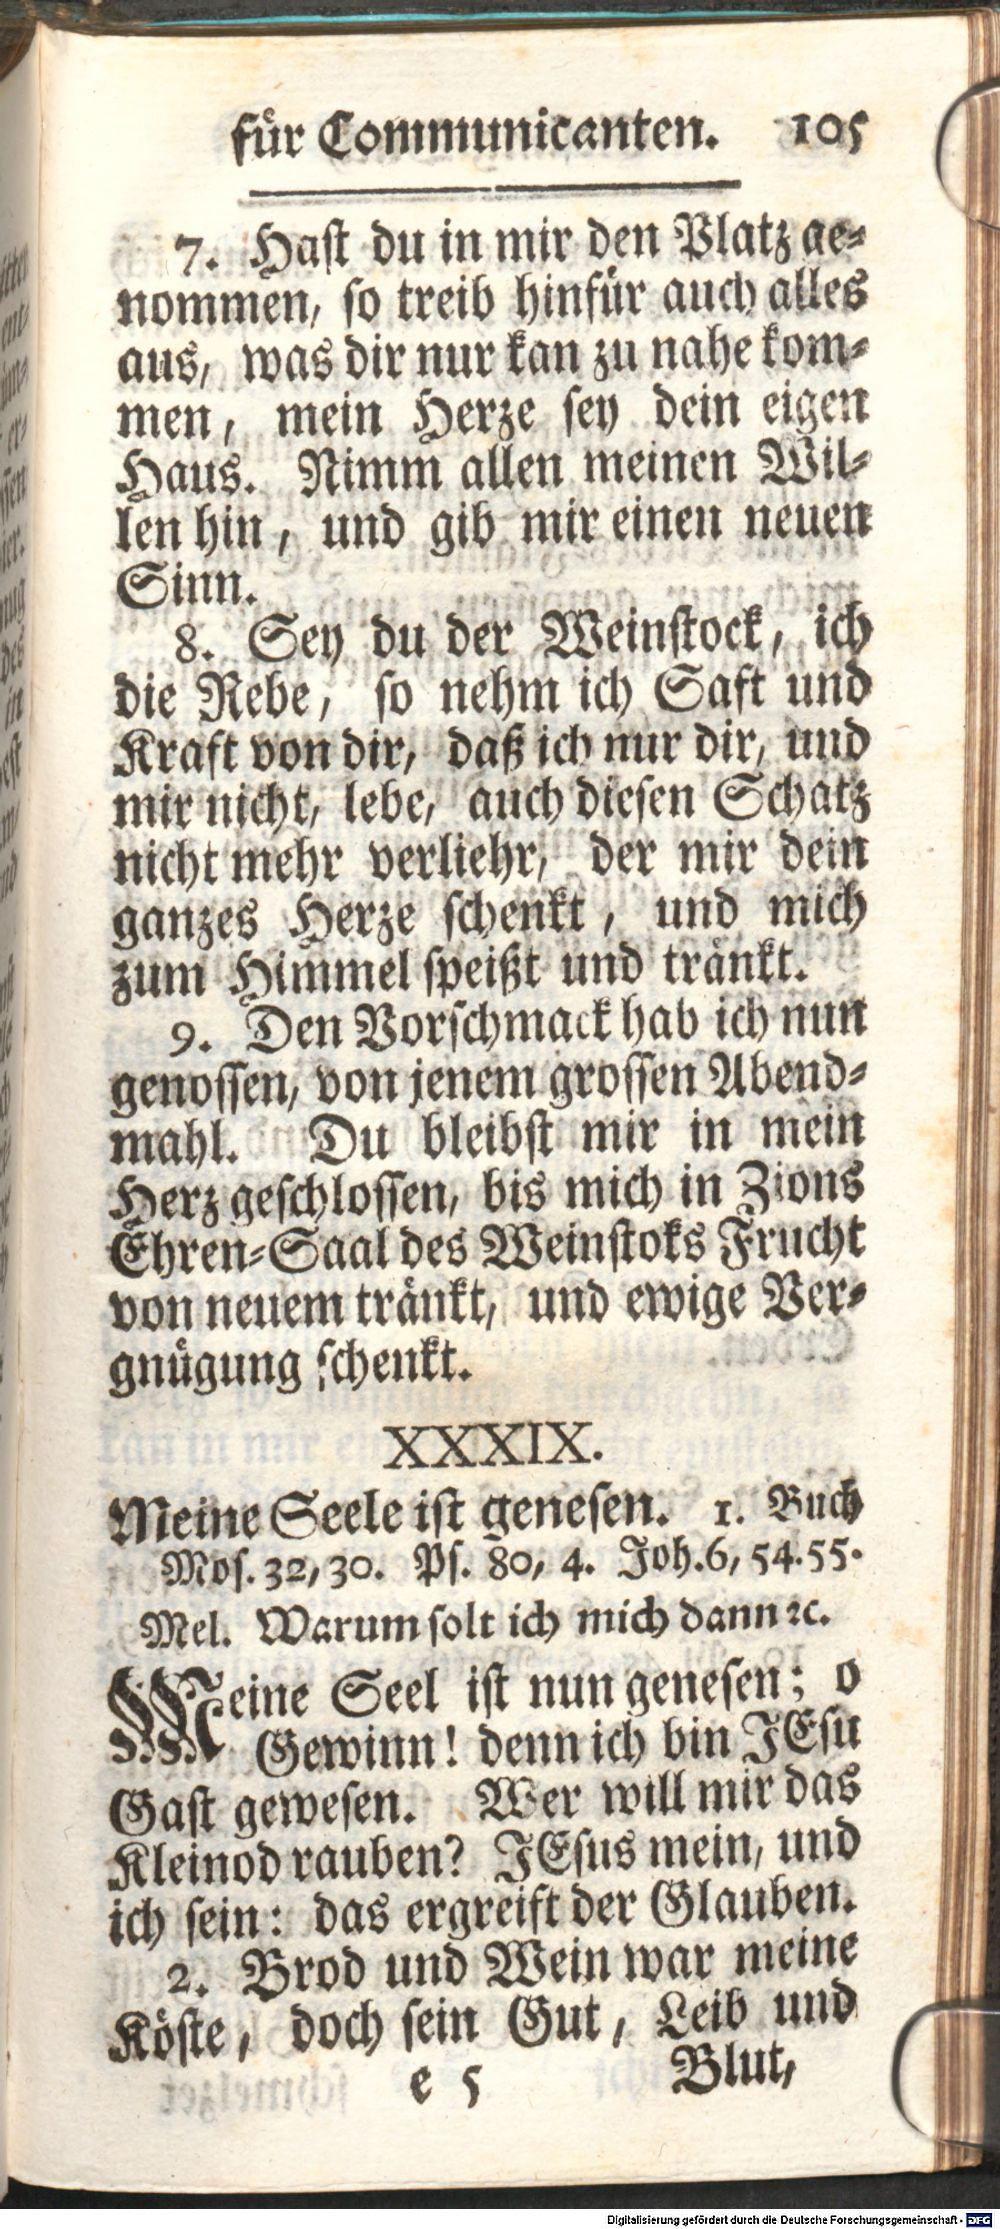 für Communicanten. 105
7. Hast du in mir den Platz ge-
nommen, so treib hinfür auch alles
aus, was dir nur kan zu nahe kom-
men, mein Herze sey dein eigen
Haus. Nimm allen meinen Wil-
len hin, und gib mir einen neuen
Sinn.
8. Sey du der Weinstock, ich
die Rebe, so nehm ich Saft und
Kraft von dir, daß ich nur dir, und
mir nicht, lebe, auch diesen Schatz
nicht mehr verliehr, der mir dein
ganzes Herze schenkt, und mich
zum Himmel speißt und tränkt.
9. Den Vorschmack hab ich nun
genossen, von jenem grossen Abend-
mahl. Du bleibst mir in mein
Herz geschlossen, bis mich in Zions
Ehren-Saal des Weinstoks Frucht
von neuem tränkt, und ewige Ver-
gnügung schenkt.
XXXIX.
Meine Seele ist genesen. 1. Buch
Mos. 32, 30. Ps. 80, 4. Joh. 6, 54. 55.
Mel. Warum solt ich mich dann ꝛc.
Meine Seel ist nun genesen; o
Gewinn! denn ich bin JEsu
Gast gewesen. Wer will mir das
Kleinod rauben? JEsus mein, und
ich sein: das ergreift der Glauben.
2. Brod und Wein war meine
Köste, doch sein Gut, Leib und
e 5 Blut,
Digitalisierung gefördert durch die Deutsche Forschungsgemeinschaft - DFG